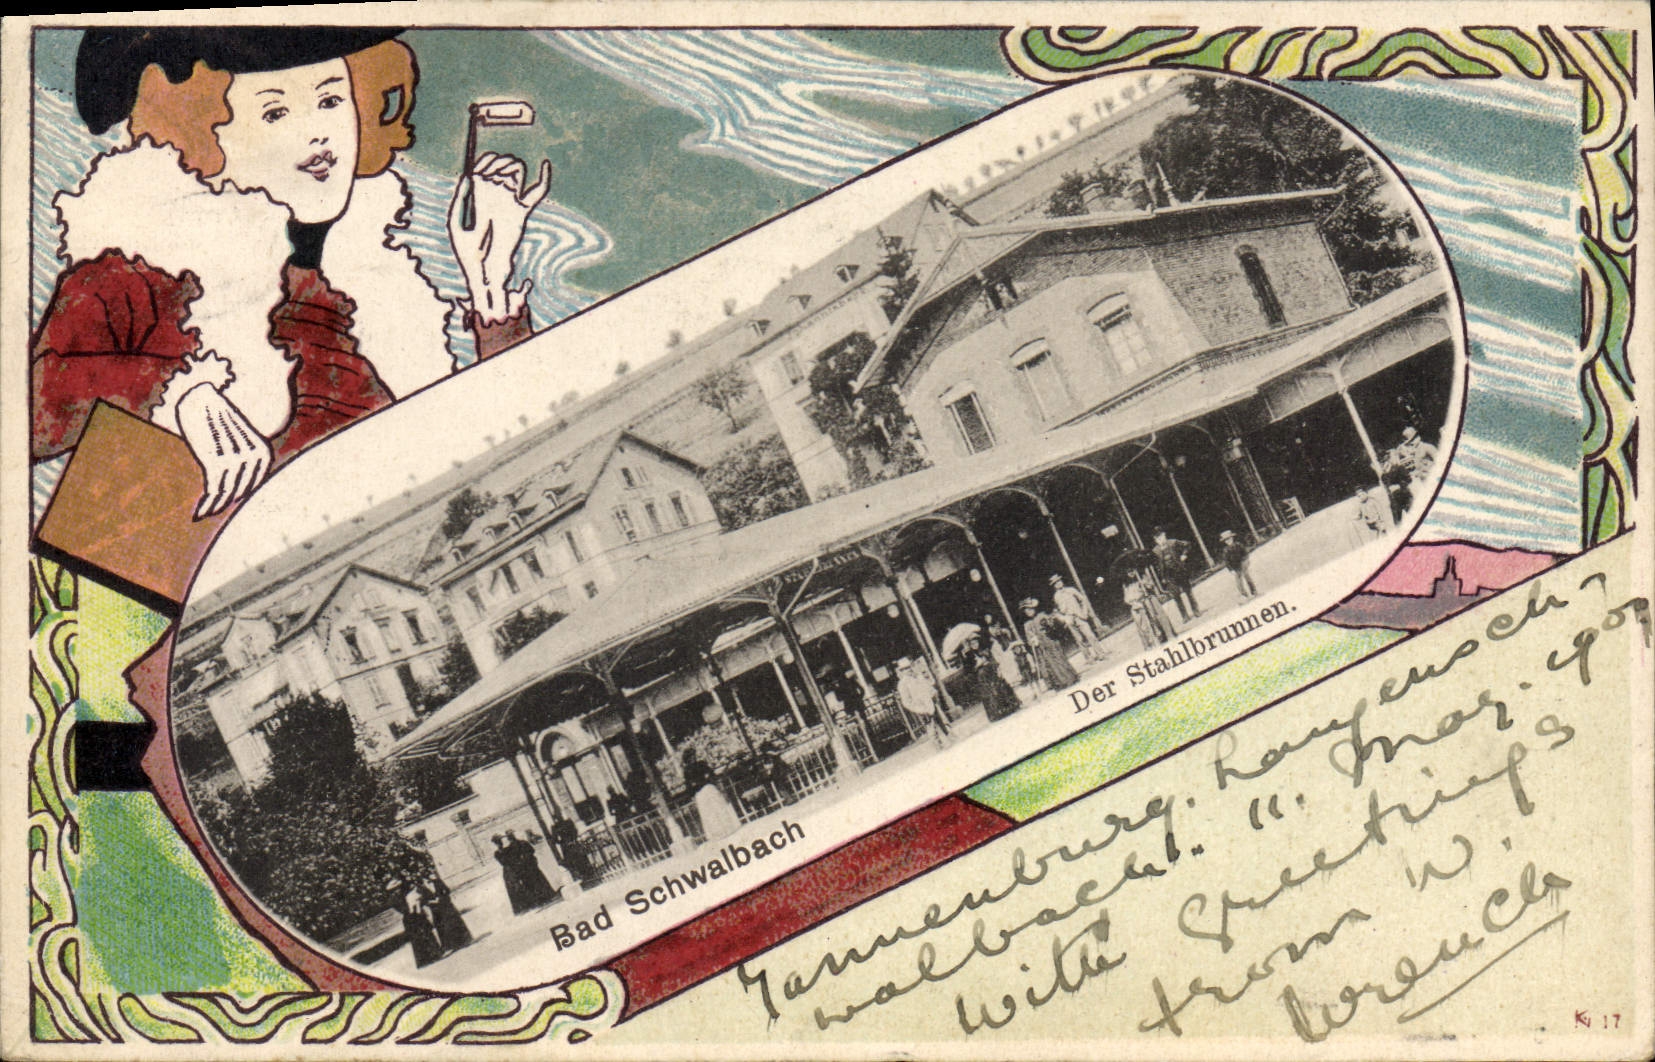 Der Stahlbrunnen.
Bad Schwalbach
Tannenburg. Langensch-
walbach. 11. Mar. 1909
with Greetings
from W.
Wrench
17